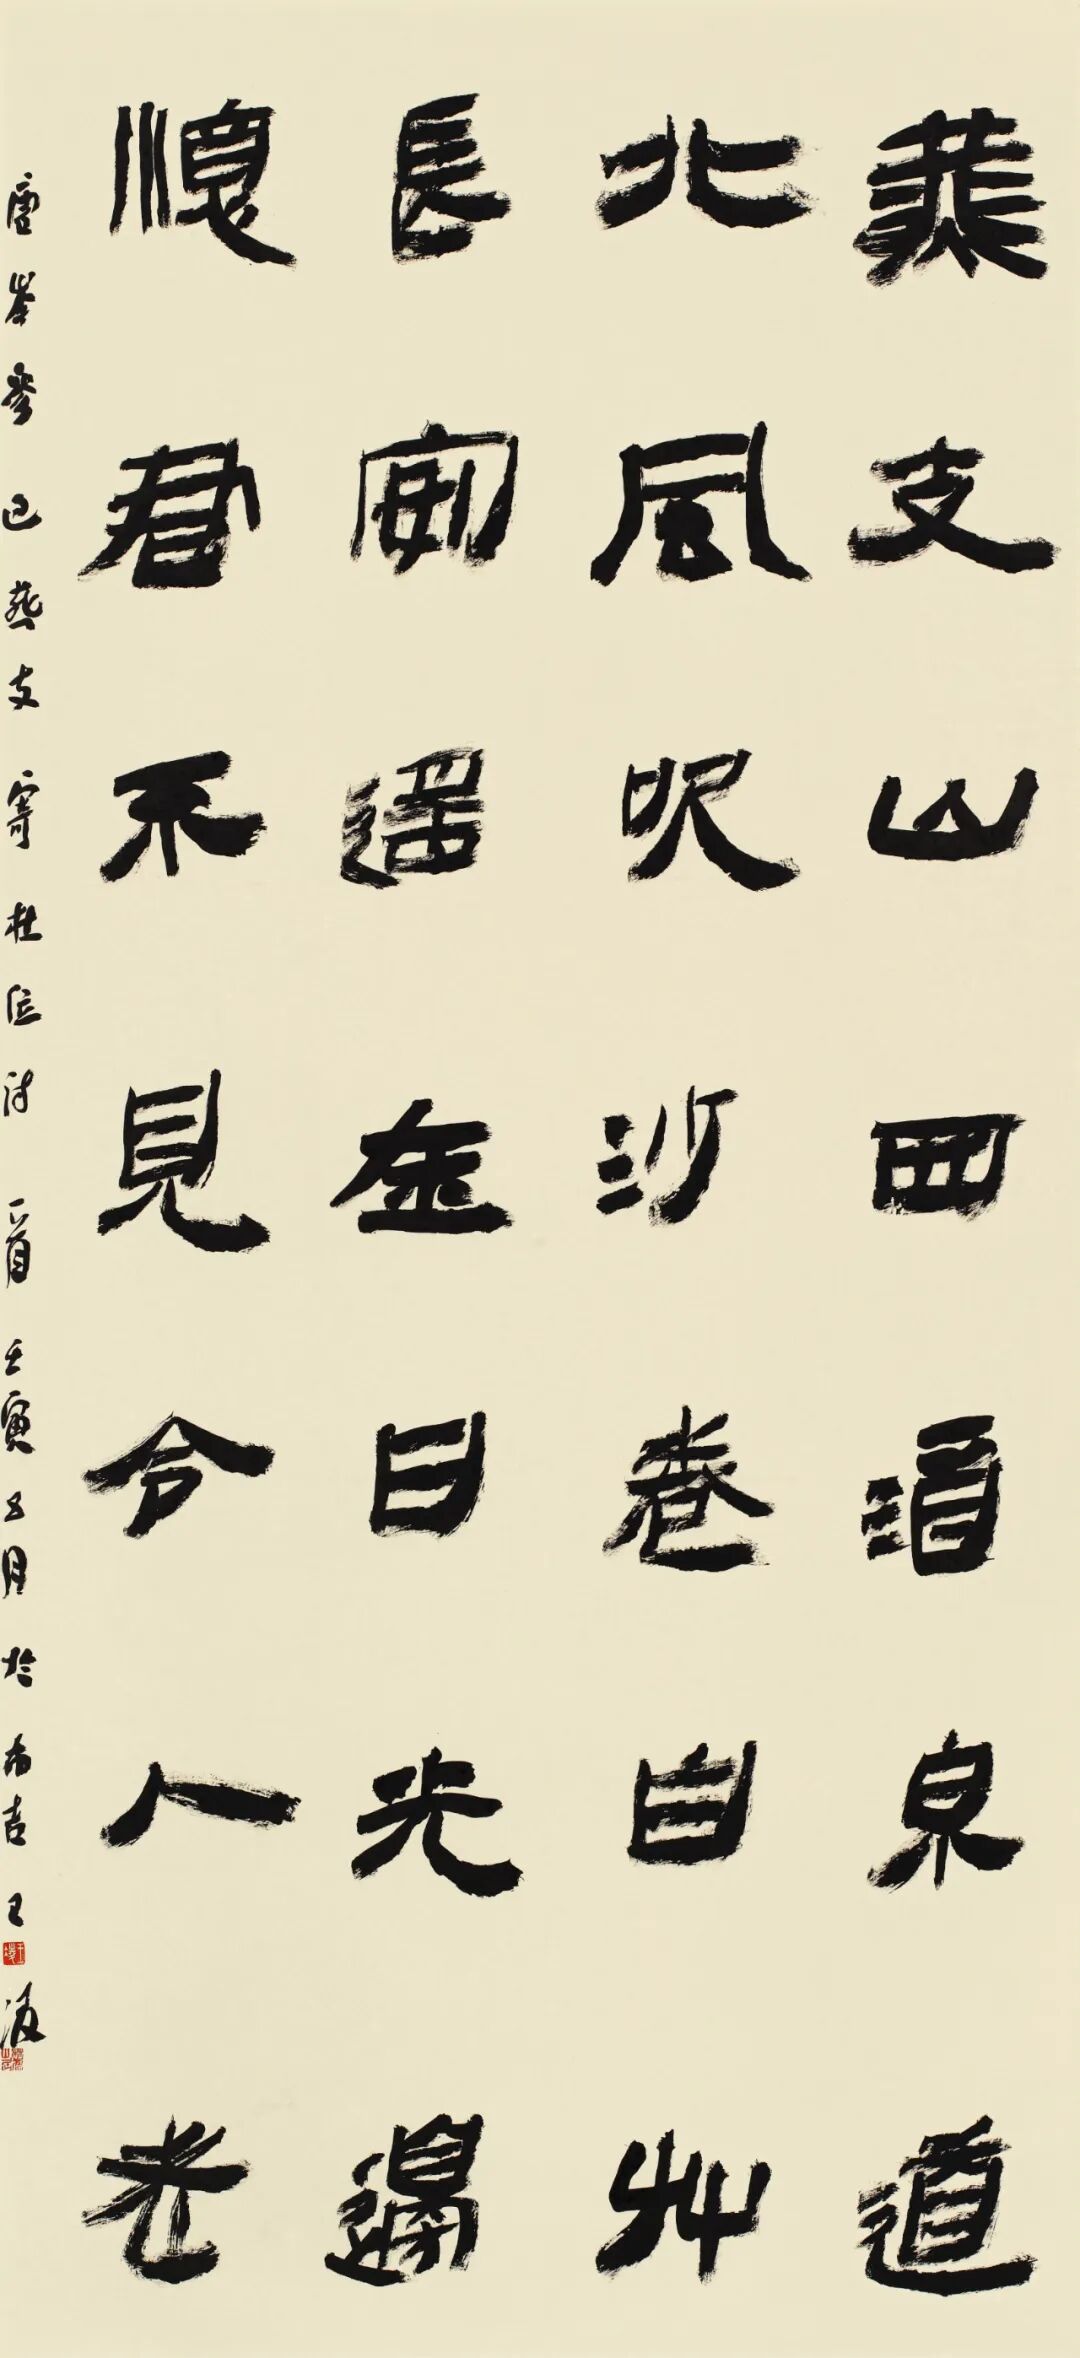 燕支山西酒泉道
北風吹沙卷白艸
長安遥在日光邊
懷君不見令人老
唐岑參過燕支寄杜位詩一首壬寅五月於布吉王